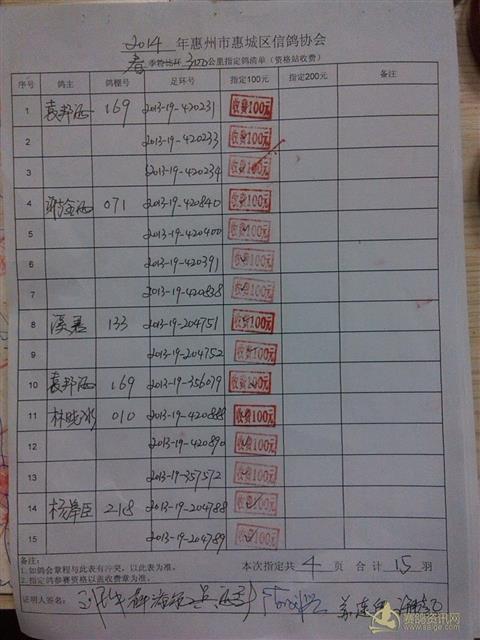 2014年惠州市惠城区信鸽协会
春季特比环300公里指定鸽清单（资格站收费）
序号 鸽主 鸽棚号 足环号 指定100元 指定200元 备注
1 袁邦 169 2013-19-420231 收费100元
2 2013-19-420233 收费100元
3 2013-19-420234 收费100元
4 071 2013-19-420840 收费100元
5 2013-19-420400 收费100元
6 2013-19-420391 收费100元
7 2013-19-420838 收费100元
8 溪君 133 2013-19-204751 收费100元
9 2013-19-204752 收费100元
10 袁邦 169 2013-19-356079 收费100元
11 林晓冰 010 2013-19-420888 收费100元
12 2013-19-420890 收费100元
13 2013-19-357572 收费100元
14 杨举臣 218 2013-19-204788 收费100元
15 2013-19-204789 收费100元
备注：
1.如鸽会章程与此表有冲突，以此表为准。
2.指定鸽参赛资格以盖收费章为准。
本次指定共4页 合计15羽
证明人签名：
赛鸽资讯网
www.saige.com